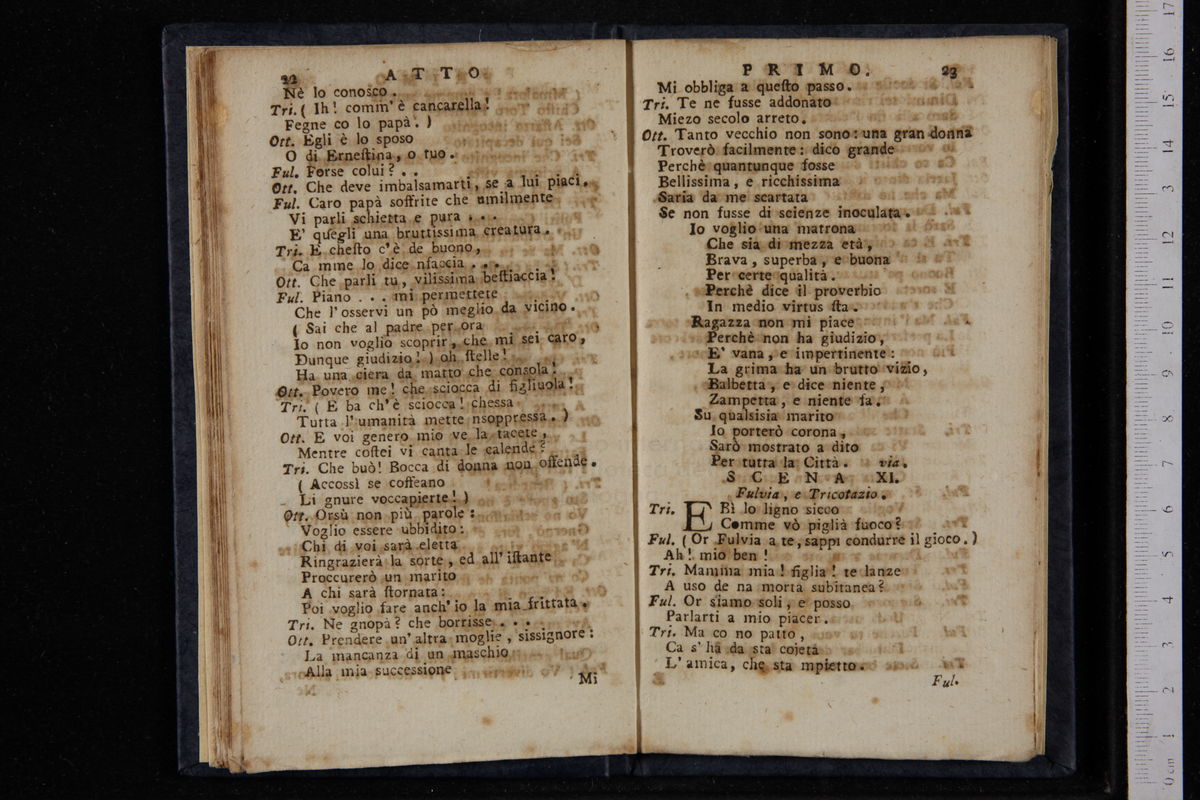 22 ATTO
Nè lo conosco.
Tri. ( Ih! comm' è cancarella!
Fegne co lo papà. )
Ott. Egli è lo sposo
O di Ernestina, o tuo.
Ful. Forse colui? . .
Ott. Che deve imbalsamarti, se a lui piaci.
Ful. Caro papà soffrite che umilmente
Vi parli schietta e pura . . .
E' quegli una bruttissima creatura.
Tri. E chesto c' è de buono,
Ca mme lo dice nfaccia . . .
Ott. Che parli tu, vilissima bestiaccia!
Ful. Piano . . . mi permettete
Che l' osservi un pò meglio da vicino.
( Sai che al padre per ora
Io non voglio scoprir, che mi sei caro,
Dunque giudizio! ) oh stelle!
Ha una ciera da matto che consola!
Ott. Povero me! che sciocca di figliuola!
Tri. ( E ba ch' è sciocca! chessa
Tutta l' umanità mette nsoppressa. )
Ott. E voi genero mio ve la tacete,
Mentre costei vi canta le calende?
Tri. Che buò! Bocca di donna non offende.
( Accossì se coffeano
Li gnure voccapierte! )
Ott. Orsù non più parole:
Voglio essere ubbidito:
Chi di voi sarà eletta
Ringrazierà la sorte, ed all' istante
Proccurerò un marito
A chi sarà stornata:
Poi voglio fare anch' io la mia frittata.
Tri. Ne gnopà? che borrisse . . .
Ott. Prendere un' altra moglie, sissignore:
La mancanza di un maschio
Alla mia successione
Mi
PRIMO. 23
Mi obbliga a questo passo.
Tri. Te ne fusse addonato
Miezo secolo arreto.
Ott. Tanto vecchio non sono: una gran donna
Troverò facilmente: dico grande
Perchè quantunque fosse
Bellissima, e ricchissima
Saria da me scartata
Se non fusse di scienze inoculata.
Io voglio una matrona
Che sia di mezza età,
Brava, superba, e buona
Per certe qualità.
Perchè dice il proverbio
In medio virtus sta.
Ragazza non mi piace
Perchè non ha giudizio,
E' vana, e impertinente:
La grima ha un brutto vizio,
Balbetta, e dice niente,
Zampetta, e niente fa.
Su qualsisia marito
Io porterò corona,
Sarò mostrato a dito
Per tutta la Città. via.
SCENA XI.
Fulvia, e Tricotazio.
Tri. EBì lo ligno sicco
Comme vò piglià fuoco?
Ful. ( Or Fulvia a te, sappi condurre il gioco. )
Ah! mio ben!
Tri. Mamma mia! figlia! te lanze
A uso de na morta subitanea?
Ful. Or siamo soli, e posso
Parlarti a mio piacer.
Tri. Ma co no patto,
Ca s' ha da sta coieta
L' amica, che sta mpietto.
Ful.
0 cm 1 2 3 4 5 6 7 8 9 10 11 12 13 14 15 16 17